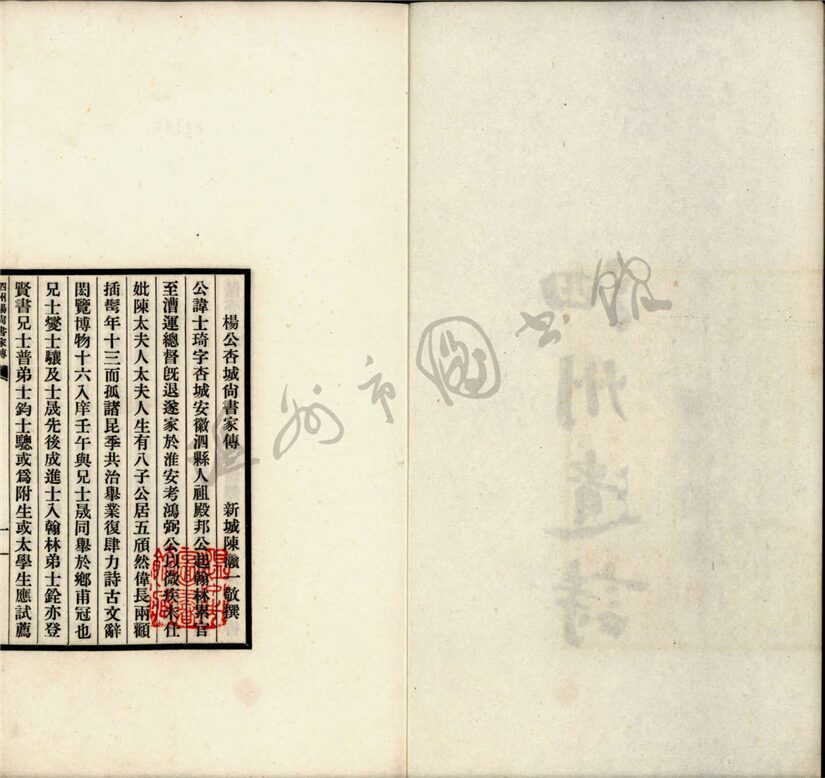 楊公杏城尙書家傳　新城陳灨一敬撰
公諱士琦字杏城安徽泗縣人祖殿邦公起翰林累官
至漕運總督旣退遂家於淮安考鴻弼公以微疾未仕
妣陳太夫人太夫人生有八子公居五頎然偉長兩顴
插髩年十三而孤諸昆季共治舉業復肆力詩古文辭
閎覽博物十六入庠壬午與兄士晟同舉於鄕甫冠也
兄士燮士驤及士晟先後成進士入翰林弟士銓亦登
賢書兄士普弟士鈞士驄或爲附生或太學生應試薦
泗州楊尙書家傳
一
泗州遺詩
溫州市圖书館